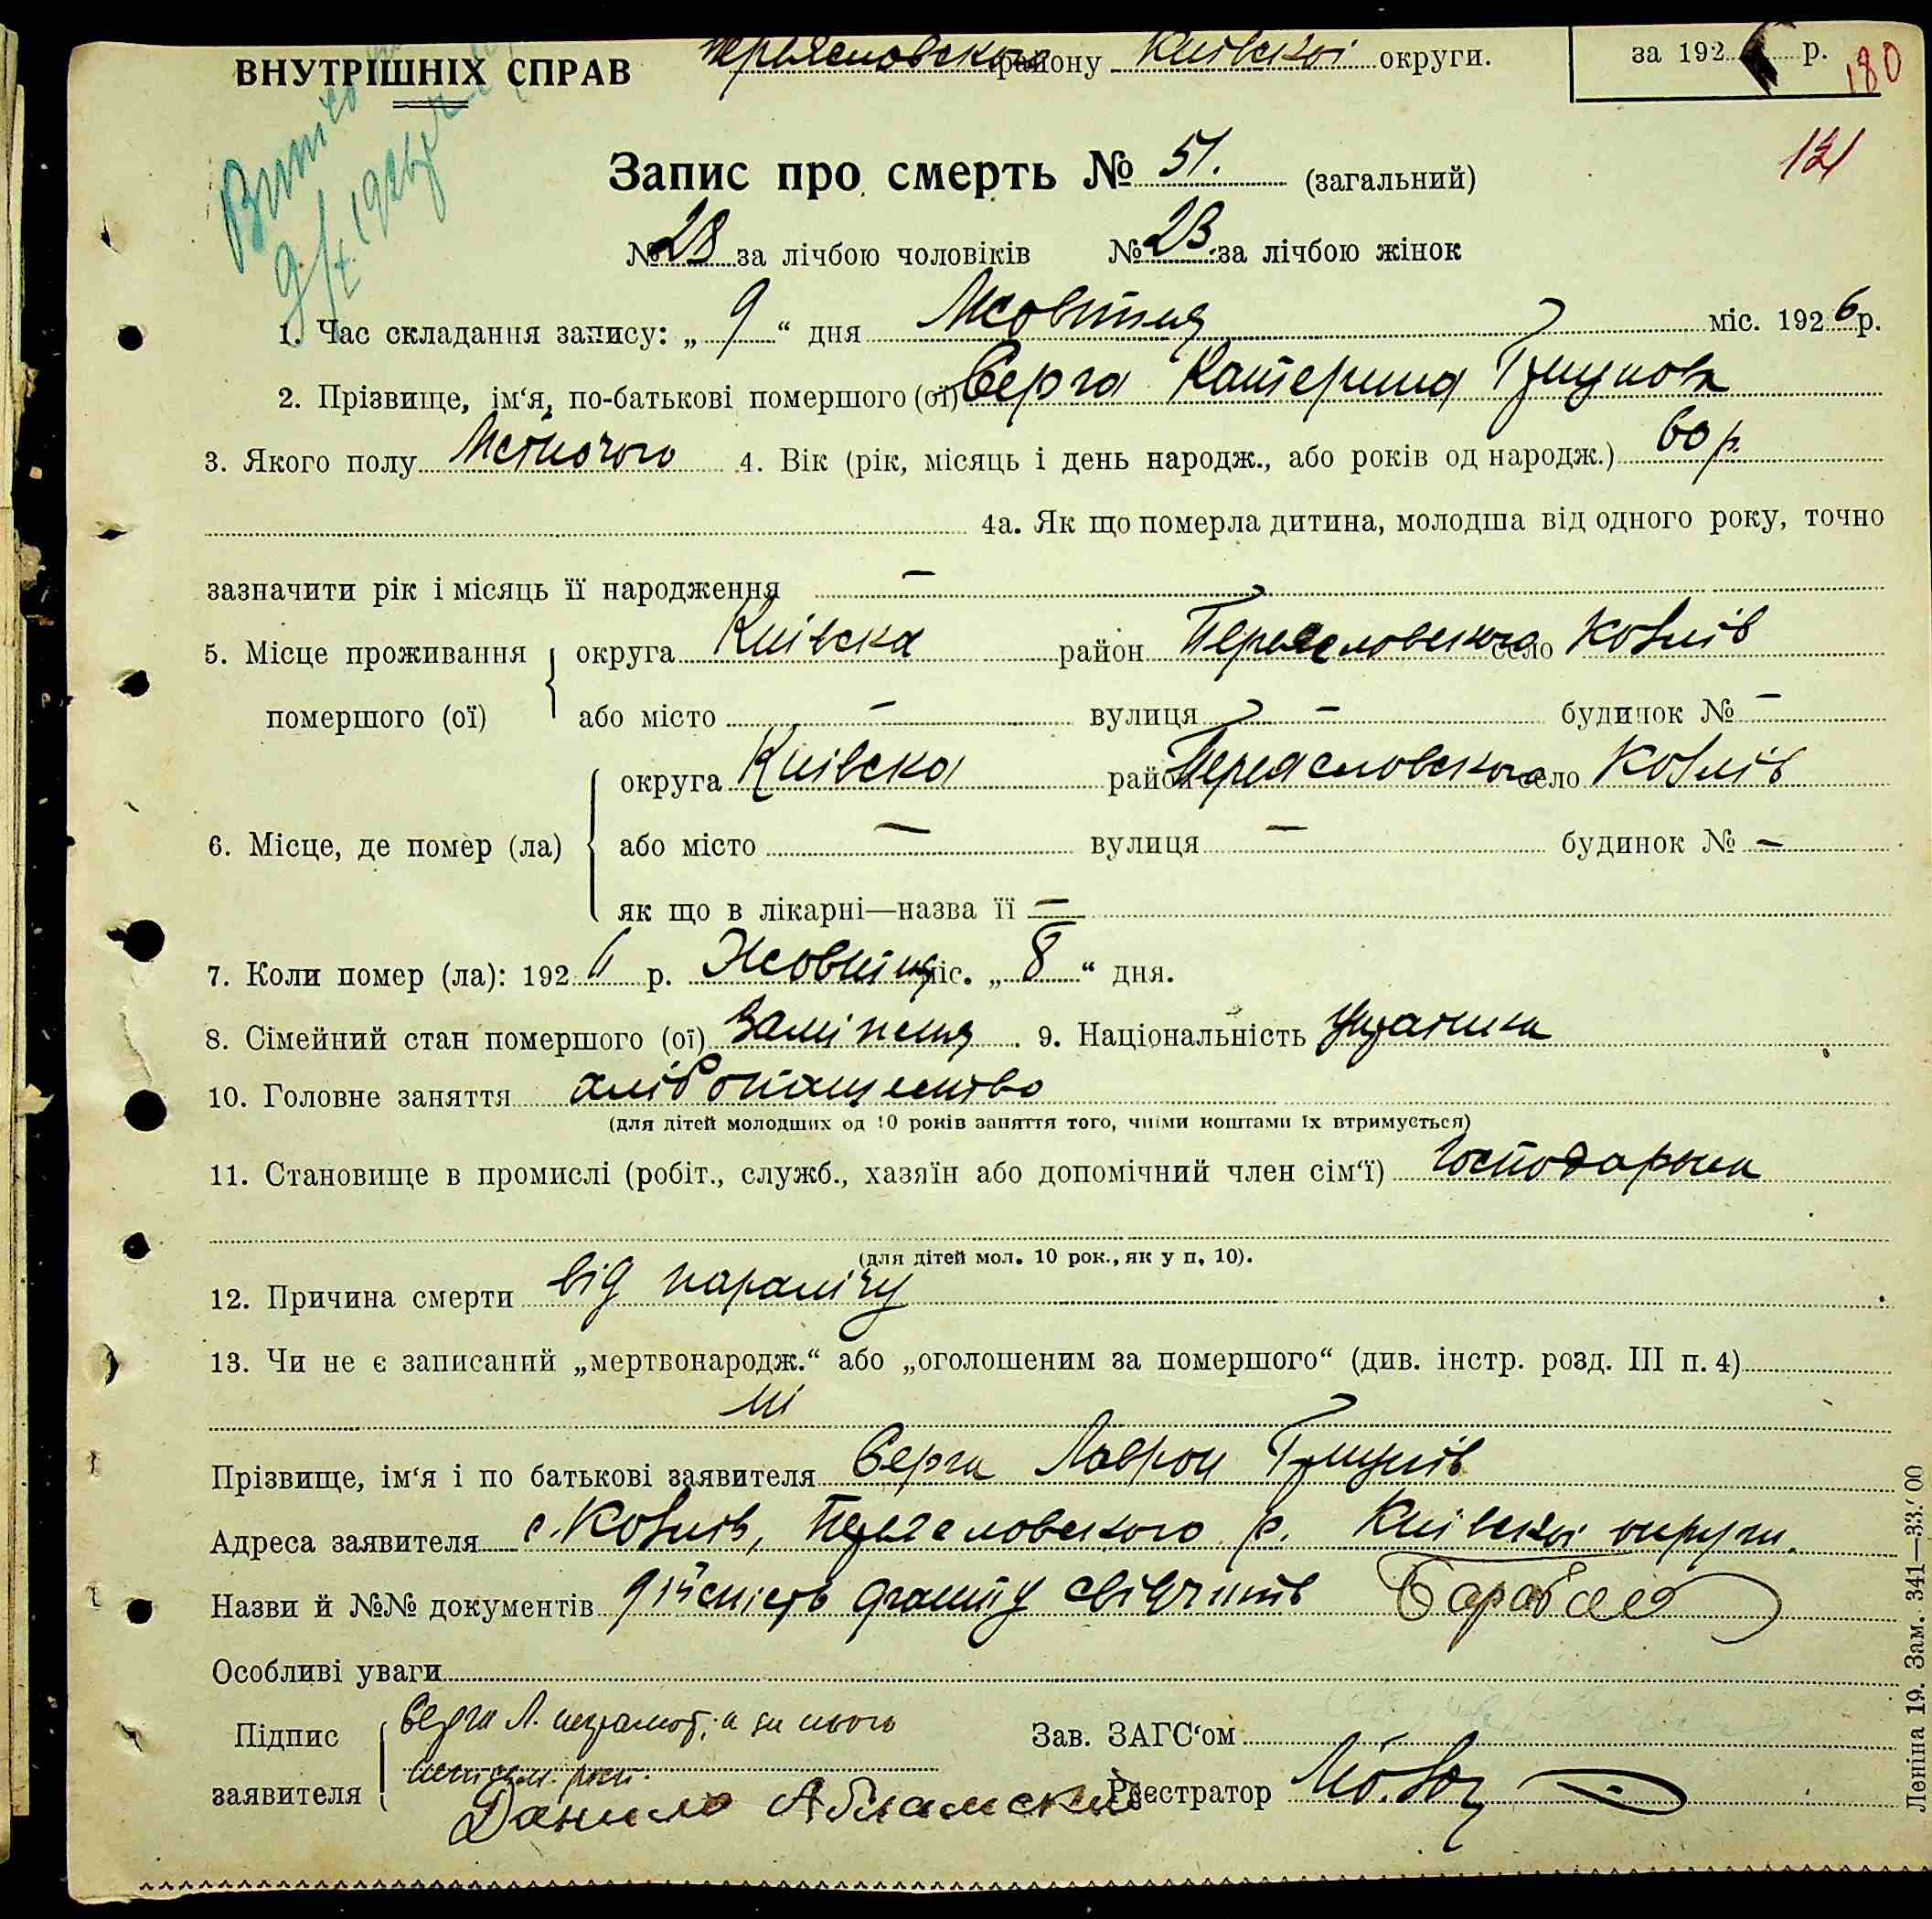 ВНУТРІШНІХ СПРАВ
району Київскоі округи.
за 192 р.
180
Витяг
9/X 1926 р
131
Запис про смерть № 51. (загальний)
№ 28 за лічбою чоловіків № 23. за лічбою жінок
1. Час складання запису: „ 9 “ дня Жовтня міс. 1926 р.
2. Прізвище, ім‘я, по-батькові помершого (ої) Верга Катерина
3. Якого полу Жіночого 4. Вік (рік, місяць і день народж., або років од народж.) 60 р.
4а. Як що померла дитина, молодша від одного року, точно
зазначити рік і місяць її народження —
5. Місце проживання округа Киівска район Переясловского село Козлів
помершого (ої) або місто — вулиця — будинок № —
округа Киівска район Переясловского село Козлів
6. Місце, де помер (ла) або місто — вулиця — будинок № —
як що в лікарні—назва її —
7. Коли помер (ла): 1926 р. Жовтня міс. „ 8 “ дня.
8. Сімейний стан помершого (ої) Заміжня 9. Національність Украінка
10. Головне заняття хліборобство
(для дітей молодших од 10 років заняття того, чиїми коштами їх втримується)
11. Становище в промислі (робіт., служб., хазяїн або допомічний член сім‘ї) Господарка
(для дітей мол. 10 рок., як у п. 10).
12. Причина смерти від паралічу
13. Чи не є записаний „мертвонародж.“ або „оголошеним за помершого“ (див. інстр. розд. III п. 4)
ні
Прізвище, ім‘я і по батькові заявителя Верга Лаврон
Адреса заявителя с. Козлів, Переясловского р. Киівскоі округи.
Назви й №№ документів дійсність факту свідчить
Особливі уваги
Підпис Верга Л. неграмот., а за нього
заявителя
Данило
Зав. ЗАГС‘ом
Реестратор
Леніна 19. Зам. 341—33.000